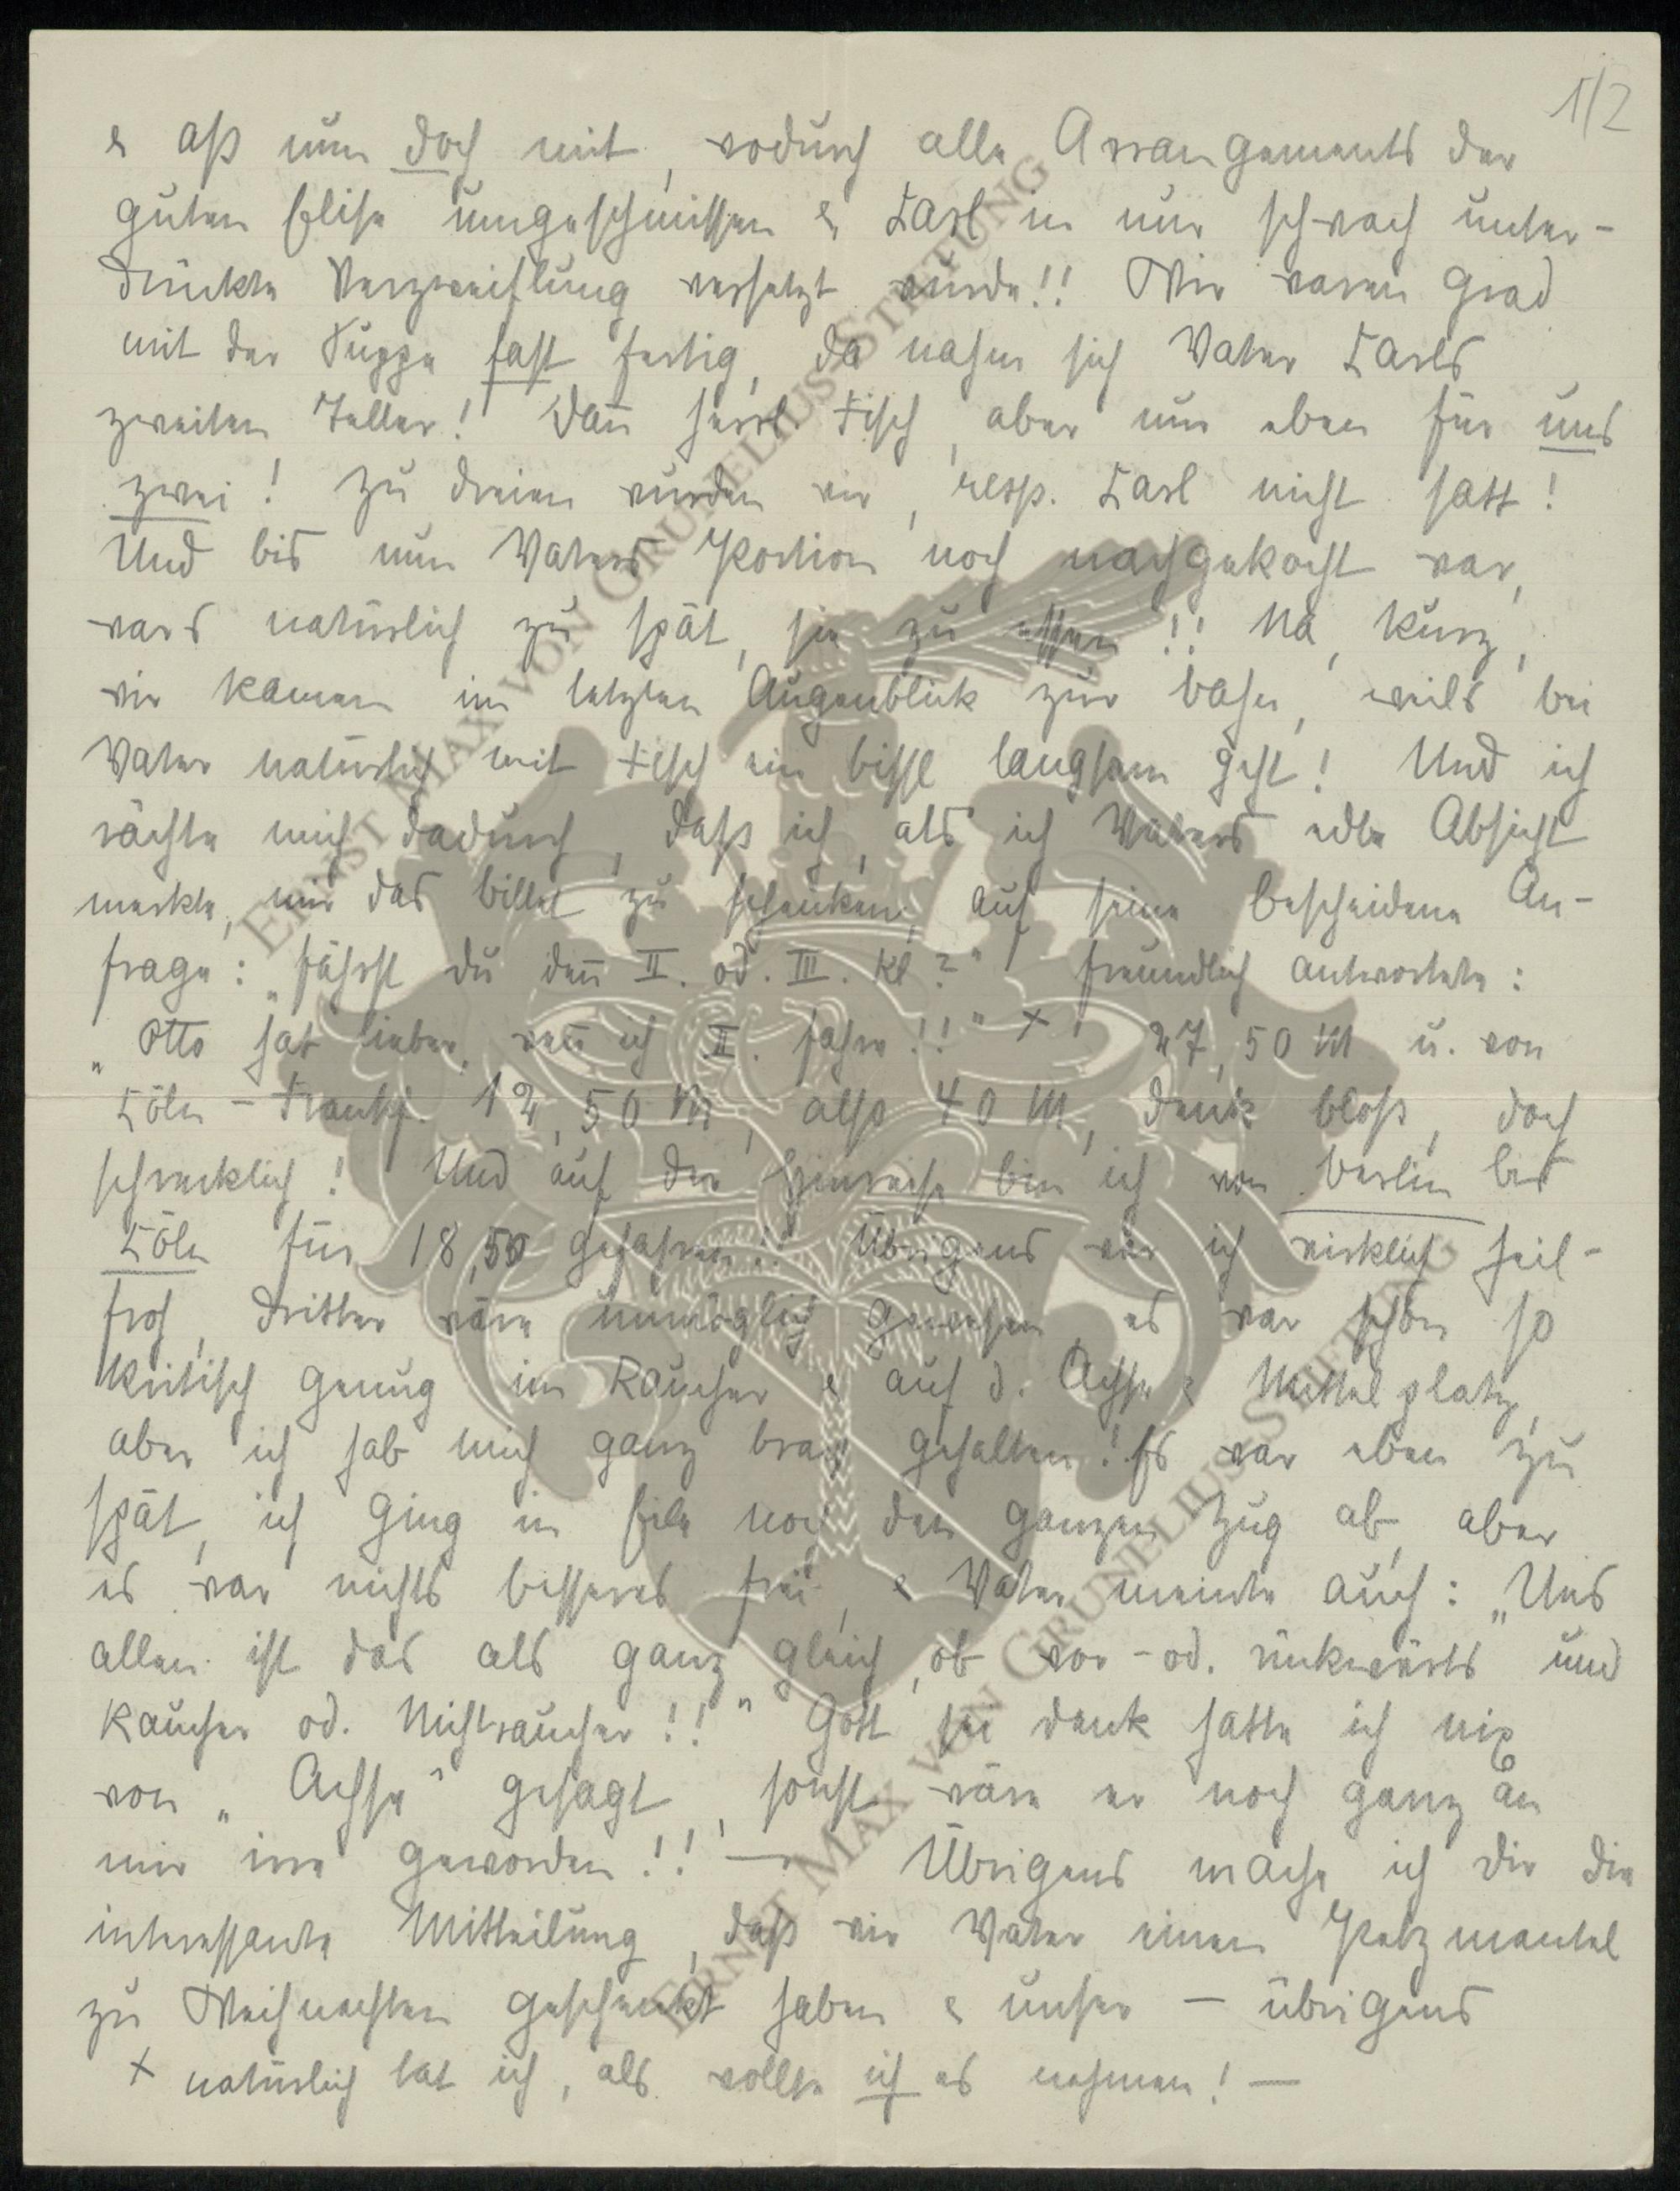 1/2
& aß nun doch mit, wodurch alle Arrangements der
guten Elise umgeschmissen & Carl in nur schwach unter-
drückte Verzweiflung versetzt wurde!! Wir waren grad
mit der Suppe fast fertig, da nahm sich Vater Carls
zweiten Teller! Dan̄ herrl. Fisch, aber nur eben für uns
zwei! Zu dreien wurden wir, resp. Carl nicht satt!
Und bis nun Vaters Portion noch nachgekocht war,
wars natürlich zu spät, sie zu essen!! Na, kurz,
wir kamen im letzten Augenblick zur Bahn, weils bei
Vater natürlich mit Fisch ein bissl langsam geht! Und ich
rächte mich dadurch, daß ich, als ich Vaters edle Absicht
merkte, mir das Billet zu schenken, auf seine bescheidene An-
frage: „Fährst du den̄ II. od. III. Kl?" freundlich antwortete:
„Otto hat lieber, wen̄ ich II. fahre!!" + 27,50 M u. von
Cöln – Frankf. 12,50 M, also 40 M, denk bloß, doch
schrecklich! Und auf der Hinreise bin ich von Berlin bis
Cöln für 18,50 gefahren!! Übrigens war ich wirklich heil-
froh, dritter wäre unmöglich gewesen, es war schon so
kritisch genug im Raucher & auf d. Achse & Mittelplatz,
aber ich hab mich ganz brav gehalten! Es war eben zu
spät, ich ging in Eile noch den ganzen Zug ab, aber
es war nichts besseres frei, & Vater meinte auch: „Uns
allen ist das als ganz gleich, ob vor- od. rückwärts und
Raucher od. Nichtraucher!!" Gott sei dank hatte ich nix
von „Achse" gesagt, sonst wäre er noch ganz an
mir irre geworden!! — Übrigens mache ich Dir die
interessante Mitteilung, daß wir Vater einen Pelzmantel
zu Weihnachten geschenkt haben & unser – übrigens
+ natürlich tat ich, als wollte ich es nehmen! —
ERNST MAX VON GRUNELIUS-STIFTUNG
ERNST MAX VON GRUNELIUS-STIFTUNG